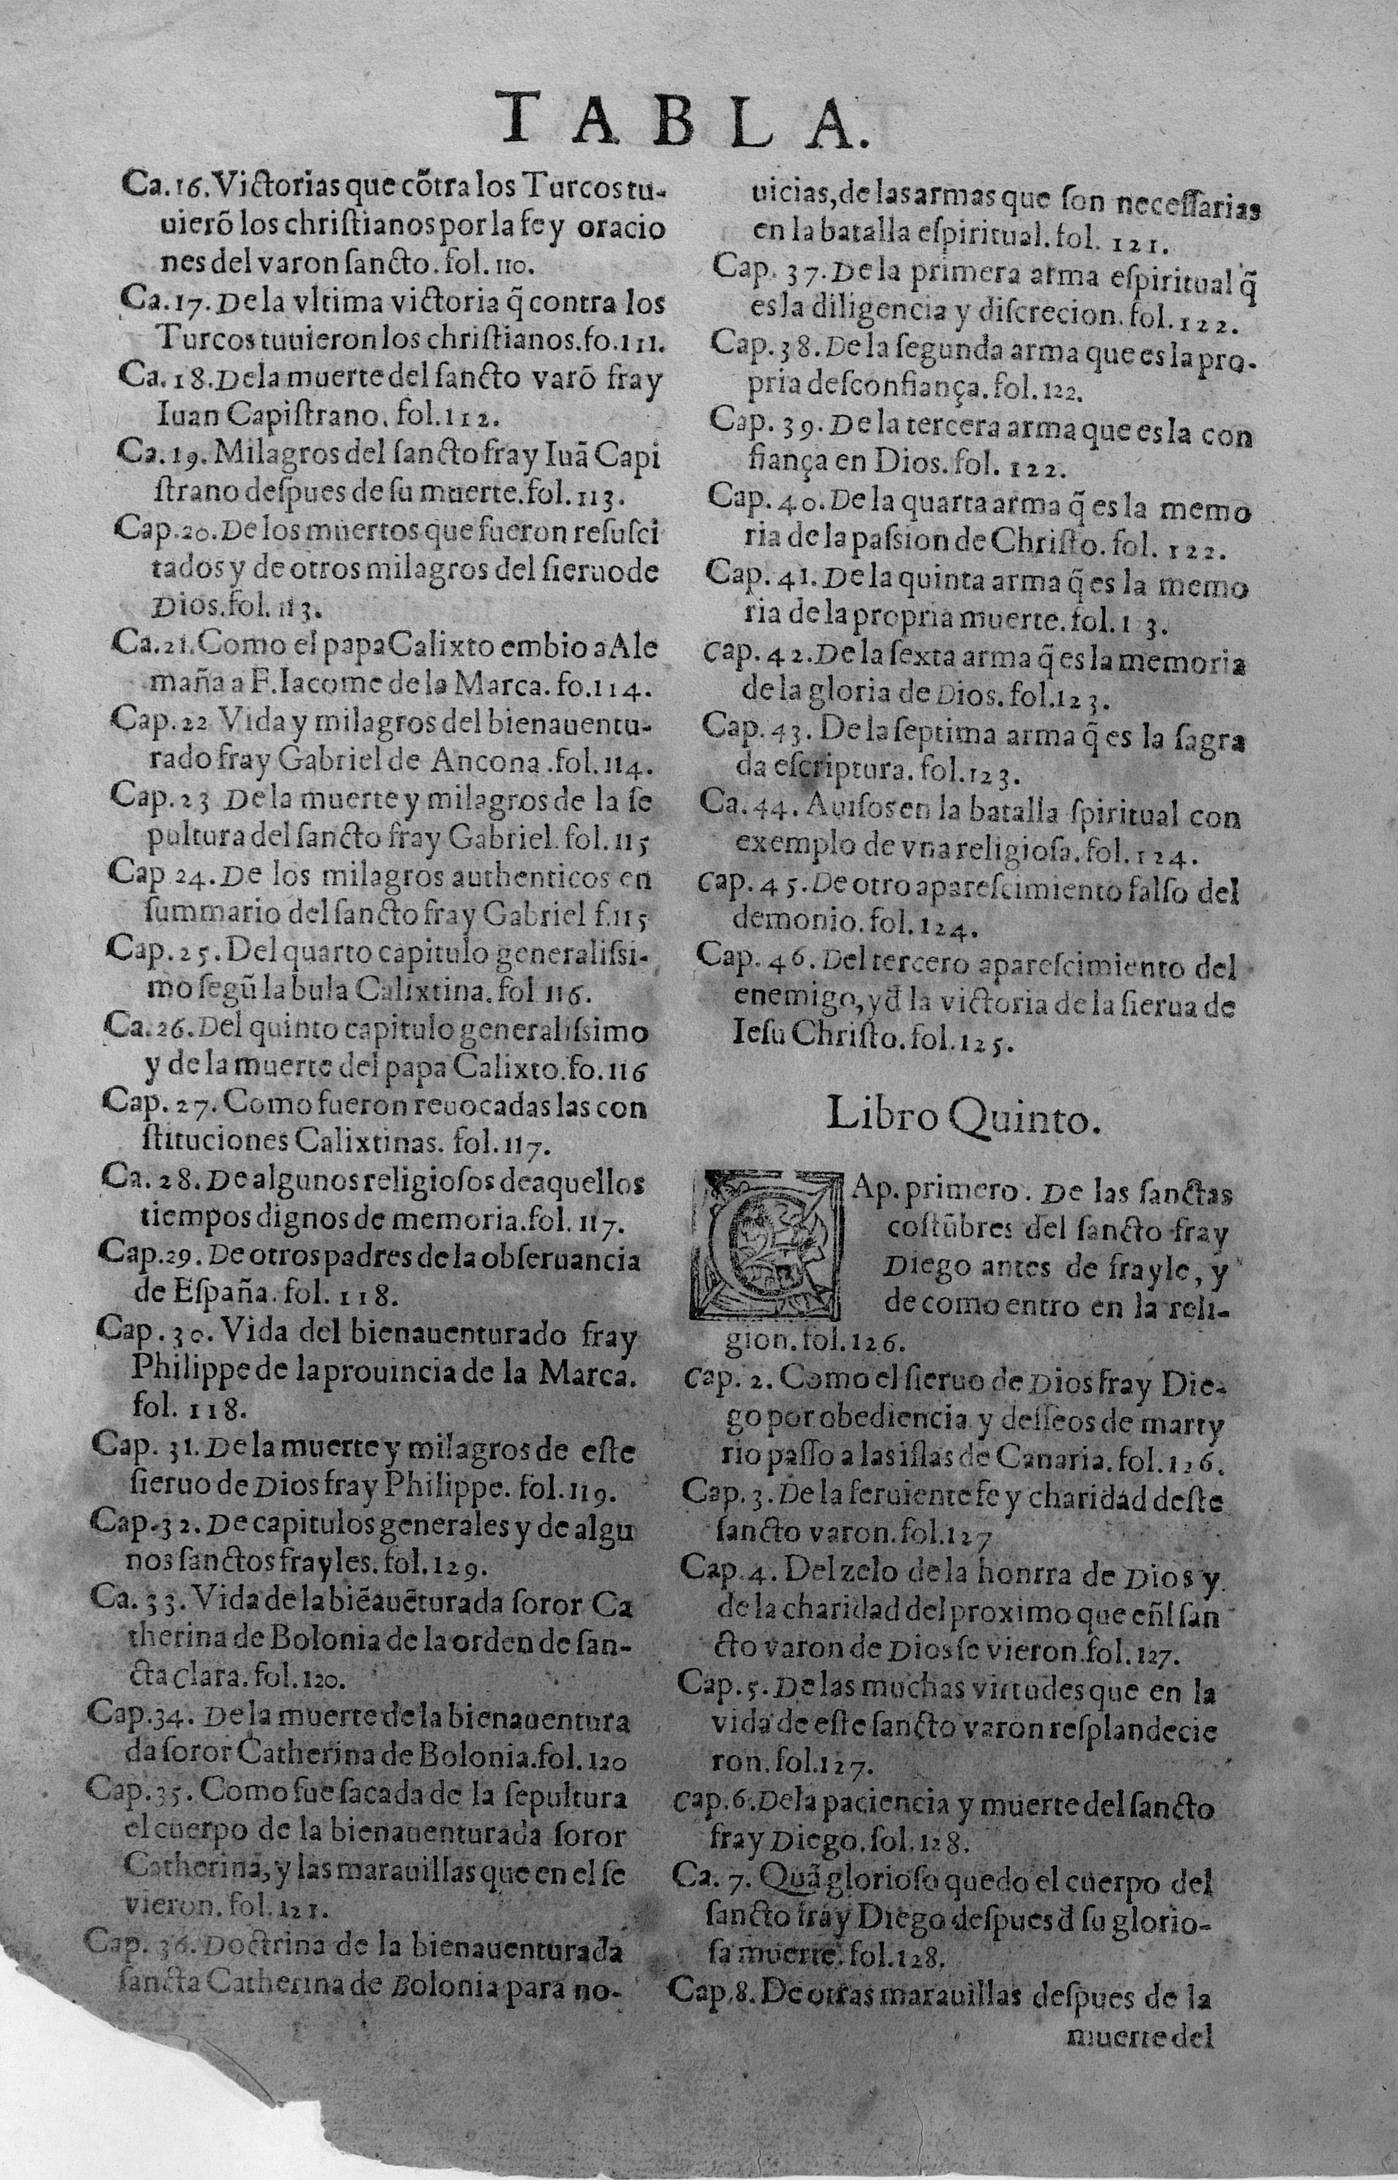 TABLA.
Ca.16.Victorias que cõtra los Turcos tu-
uierõ los chriſtianos por la fe y oracio
nes del varon ſancto.fol.110.
Ca.17.De la vltima victoria q̃ contra los
Turcos tuuieron los chriſtianos.fo.111.
Ca.18.De la muerte del ſancto varõ fray
Iuan Capiſtrano.fol.112.
Ca.19.Milagros del ſancto fray Iuã Capi
ſtrano deſpues de ſu muerte.fol.113.
Cap.20.De los muertos que fueron reſuſci
tados y de otros milagros del ſieruo de
Dios.fol.113.
Ca.21.Como el papa Calixto embio a Ale
maña a F.Iacome de la Marca.fo.114.
Cap.22 Vida y milagros del bienauentu-
rado fray Gabriel de Ancona.fol.114.
Cap.23 De la muerte y milagros de la ſe
pultura del ſancto fray Gabriel.fol.115
Cap 24.De los milagros authenticos en
ſummario del ſancto fray Gabriel f.115
Cap.25.Del quarto capitulo generaliſsi-
mo ſegũ la bula Calixtina.fol 116.
Ca.26.Del quinto capitulo generaliſsimo
y de la muerte del papa Calixto.fo.116
Cap.27.Como fueron reuocadas las con
ſtituciones Calixtinas. fol.117.
Ca.28.De algunos religioſos de aquellos
tiempos dignos de memoria.fol.117.
Cap.29.De otros padres de la obſeruancia
de Eſpaña.fol.118.
Cap.30.Vida del bienauenturado fray
Philippe de la prouincia de la Marca.
fol.118.
Cap.31.De la muerte y milagros de eſte
ſieruo de Dios fray Philippe. fol.119.
Cap.32.De capitulos generales y de algu
nos ſanctos frayles.fol.129.
Ca.33.Vida de la biẽauẽturada ſoror Ca
therina de Bolonia de la orden de ſan-
cta Clara.fol.120.
Cap.34.De la muerte de la bienauentura
da ſoror Catherina de Bolonia.fol.120
Cap.35.Como fue ſacada de la ſepultura
el cuerpo de la bienauenturada ſoror
Catherina, y las marauillas que en el ſe
vieron.fol.121.
Cap.36.Doctrina de la bienauenturada
ſancta Catherina de Bolonia para no-
uicias,de las armas que ſon neceſſarias
en la batalla eſpiritual.fol. 121.
Cap.37.De la primera arma eſpiritual q̃
es la diligencia y diſcrecion.fol.122.
Cap.38.De la ſegunda arma que es la pro-
pria deſconfiança.fol.122.
Cap.39.De la tercera arma que es la con
fiança en Dios.fol. 122.
Cap.40.De la quarta arma q̃ es la memo
ria de la paſsion de Chriſto.fol. 122.
Cap.41.De la quinta arma q̃ es la memo
ria de la propria muerte.fol.1 3.
Cap.42.De la ſexta arma q̃ es la memoria
de la gloria de Dios.fol.123.
Cap.43. De la ſeptima arma q̃ es la ſagra
da eſcriptura.fol.123.
Ca.44.Auiſos en la batalla ſpiritual con
exemplo de vna religioſa.fol.124.
Cap.45.De otro apareſcimiento falſo del
demonio.fol.124.
Cap.46.Del tercero apareſcimiento del
enemigo,y d̃ la victoria de la ſierua de
Ieſu Chriſto.fol.125.
Libro Quinto.
CAp.primero. De las ſanctas
coſtũbres del ſancto fray
Diego antes de frayle, y
de como entro en la reli-
gion.fol.126.
Cap.2.Como el ſieruo de Dios fray Die-
go por obediencia y deſſeos de marty
rio paſſo a las iſlas de Canaria.fol.126.
Cap.3.De la feruiente fe y charidad deſte
ſancto varon.fol.127
Cap.4. Del zelo de la honrra de Dios y
de la charidad del proximo que eñl ſan
cto varon de Dios ſe vieron.fol.127.
Cap.5.De las muchas virtudes que en la
vida de eſte ſancto varon reſplandecie
ron.fol.127.
Cap.6.De la paciencia y muerte del ſancto
fray Diego.fol.128.
Ca.7. Quã glorioſo quedo el cuerpo del
ſancto fray Diego deſpues d̃ ſu glorio-
ſa muerte.fol.128.
Cap.8.De otras marauillas deſpues de la
muerte del